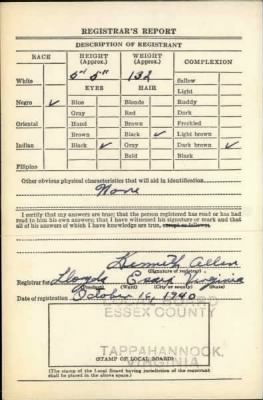 REGISTRAR'S REPORT
DESCRIPTION OF REGISTRANT
RACE HEIGHT (Approx.) WEIGHT (Approx.) COMPLEXION
5' 5" 132
White Sallow
EYES HAIR Light
Negro ✓ Blue Blonde Ruddy
Gray Red Dark
Oriental Hazel Brown Freckled
Brown Black ✓ Light brown
Indian Black ✓ Gray Dark brown ✓
Bald Black
Filipino
Other obvious physical characteristics that will aid in identification
None
I certify that my answers are true; that the person registered has read or has had
read to him his own answers; that I have witnessed his signature or mark and that
all of his answers of which I have knowledge are true, except as follows:
Kenneth Allen
(Signature of registrar)
Registrar for Lloyds Essex Virginia
(Precinct) (Ward) (City or county) (State)
Date of registration October 16, 1940
ESSEX COUNTY
TAPPAHANNOCK,
VIRGINIA
(STAMP OF LOCAL BOARD)
(The stamp of the Local Board having jurisdiction of the registrant
shall be placed in the above space.)